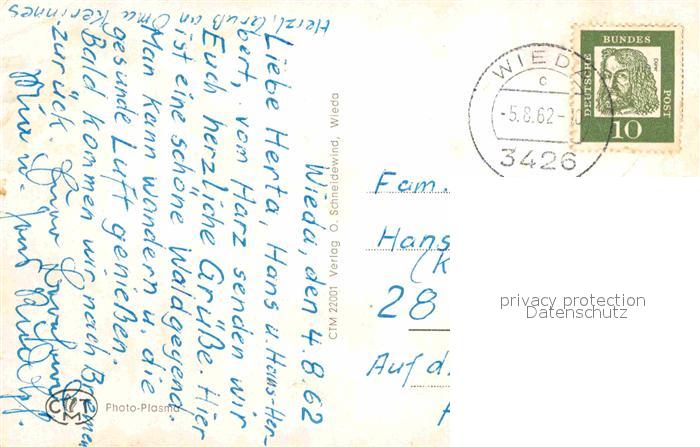 Herzl. Gruß an Oma Kerinnes
Wieda, den 4.8.62
Liebe Herta, Hans u. Hans-Her-
bert, vom Harz senden wir
Euch herzliche Grüße. Hier
ist eine schöne Waldgegend.
Man kann wandern u. die
gesunde Luft genießen.
Bald kommen wir nach Bremen
zurück.
CTM 22001 Verlag O. Schneidewind, Wieda
CTM
Photo-Plasma
WIEDA
c
-5.8.62-
3426
DEUTSCHE BUNDESPOST
Dürer
10
Fam.
Hans
(K
28
Auf d.
privacy protection
Datenschutz